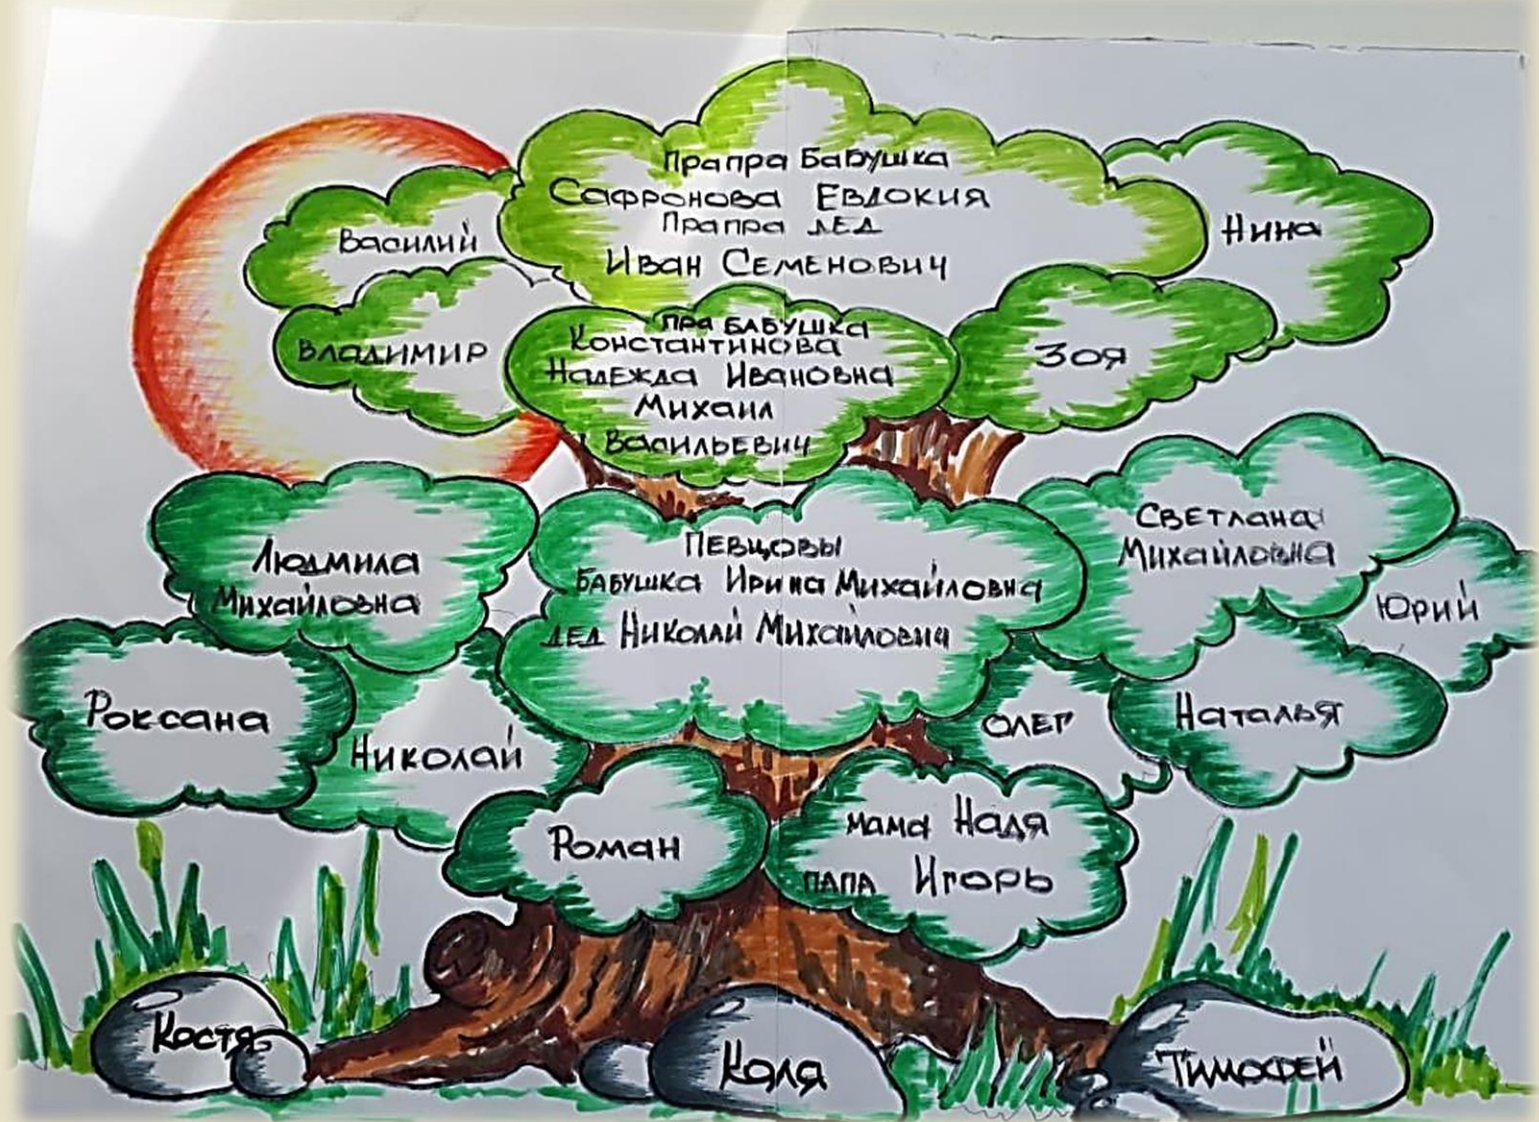 Прапра Бабушка
Сафронова Евдокия
Прапра дед
Иван Семенович
Василий
Нина
Владимир
Пра бабушка
Константинова
Надежда Ивановна
Михаил
Васильевич
Зоя
Людмила
Михайловна
Певцовы
Бабушка Ирина Михайловна
дед Николай Михайлович
Светлана
Михайловна
Юрий
Роксана
Николай
Олег
Наталья
Роман
мама Надя
папа Игорь
Костя
Коля
Тимофей